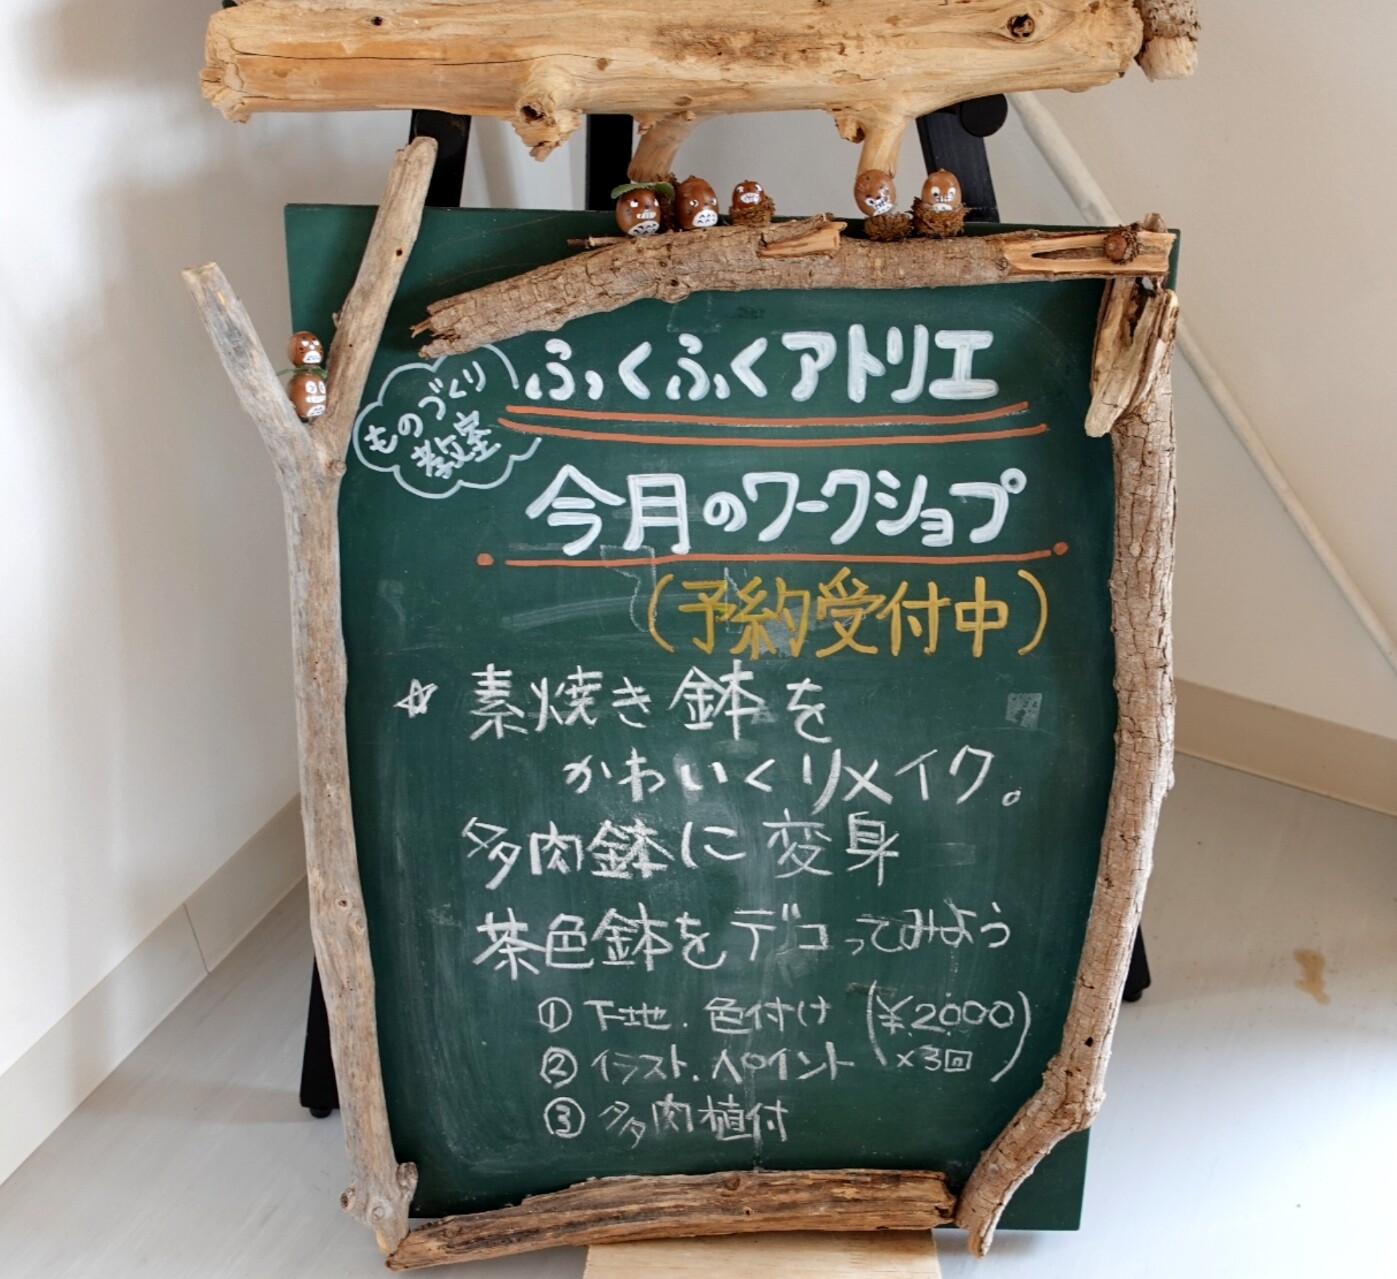 ものづくり
教室
ふくふくアトリエ
今月のワークショプ
(予約受付中)
☆ 素焼き鉢を
かわいくリメイク。
多肉鉢に変身
茶色鉢をデコってみよう
① 下地.色付け (¥2000
② イラスト.ペイント ×3回)
③ 多肉植付